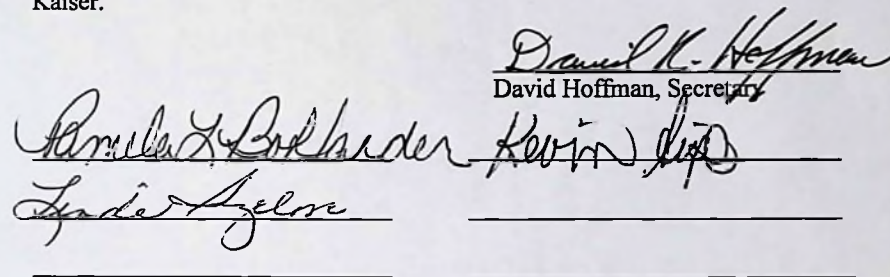 Kaiser.
David K. Hoffman
David Hoffman, Secretary
Pamela L Kevin
Linda